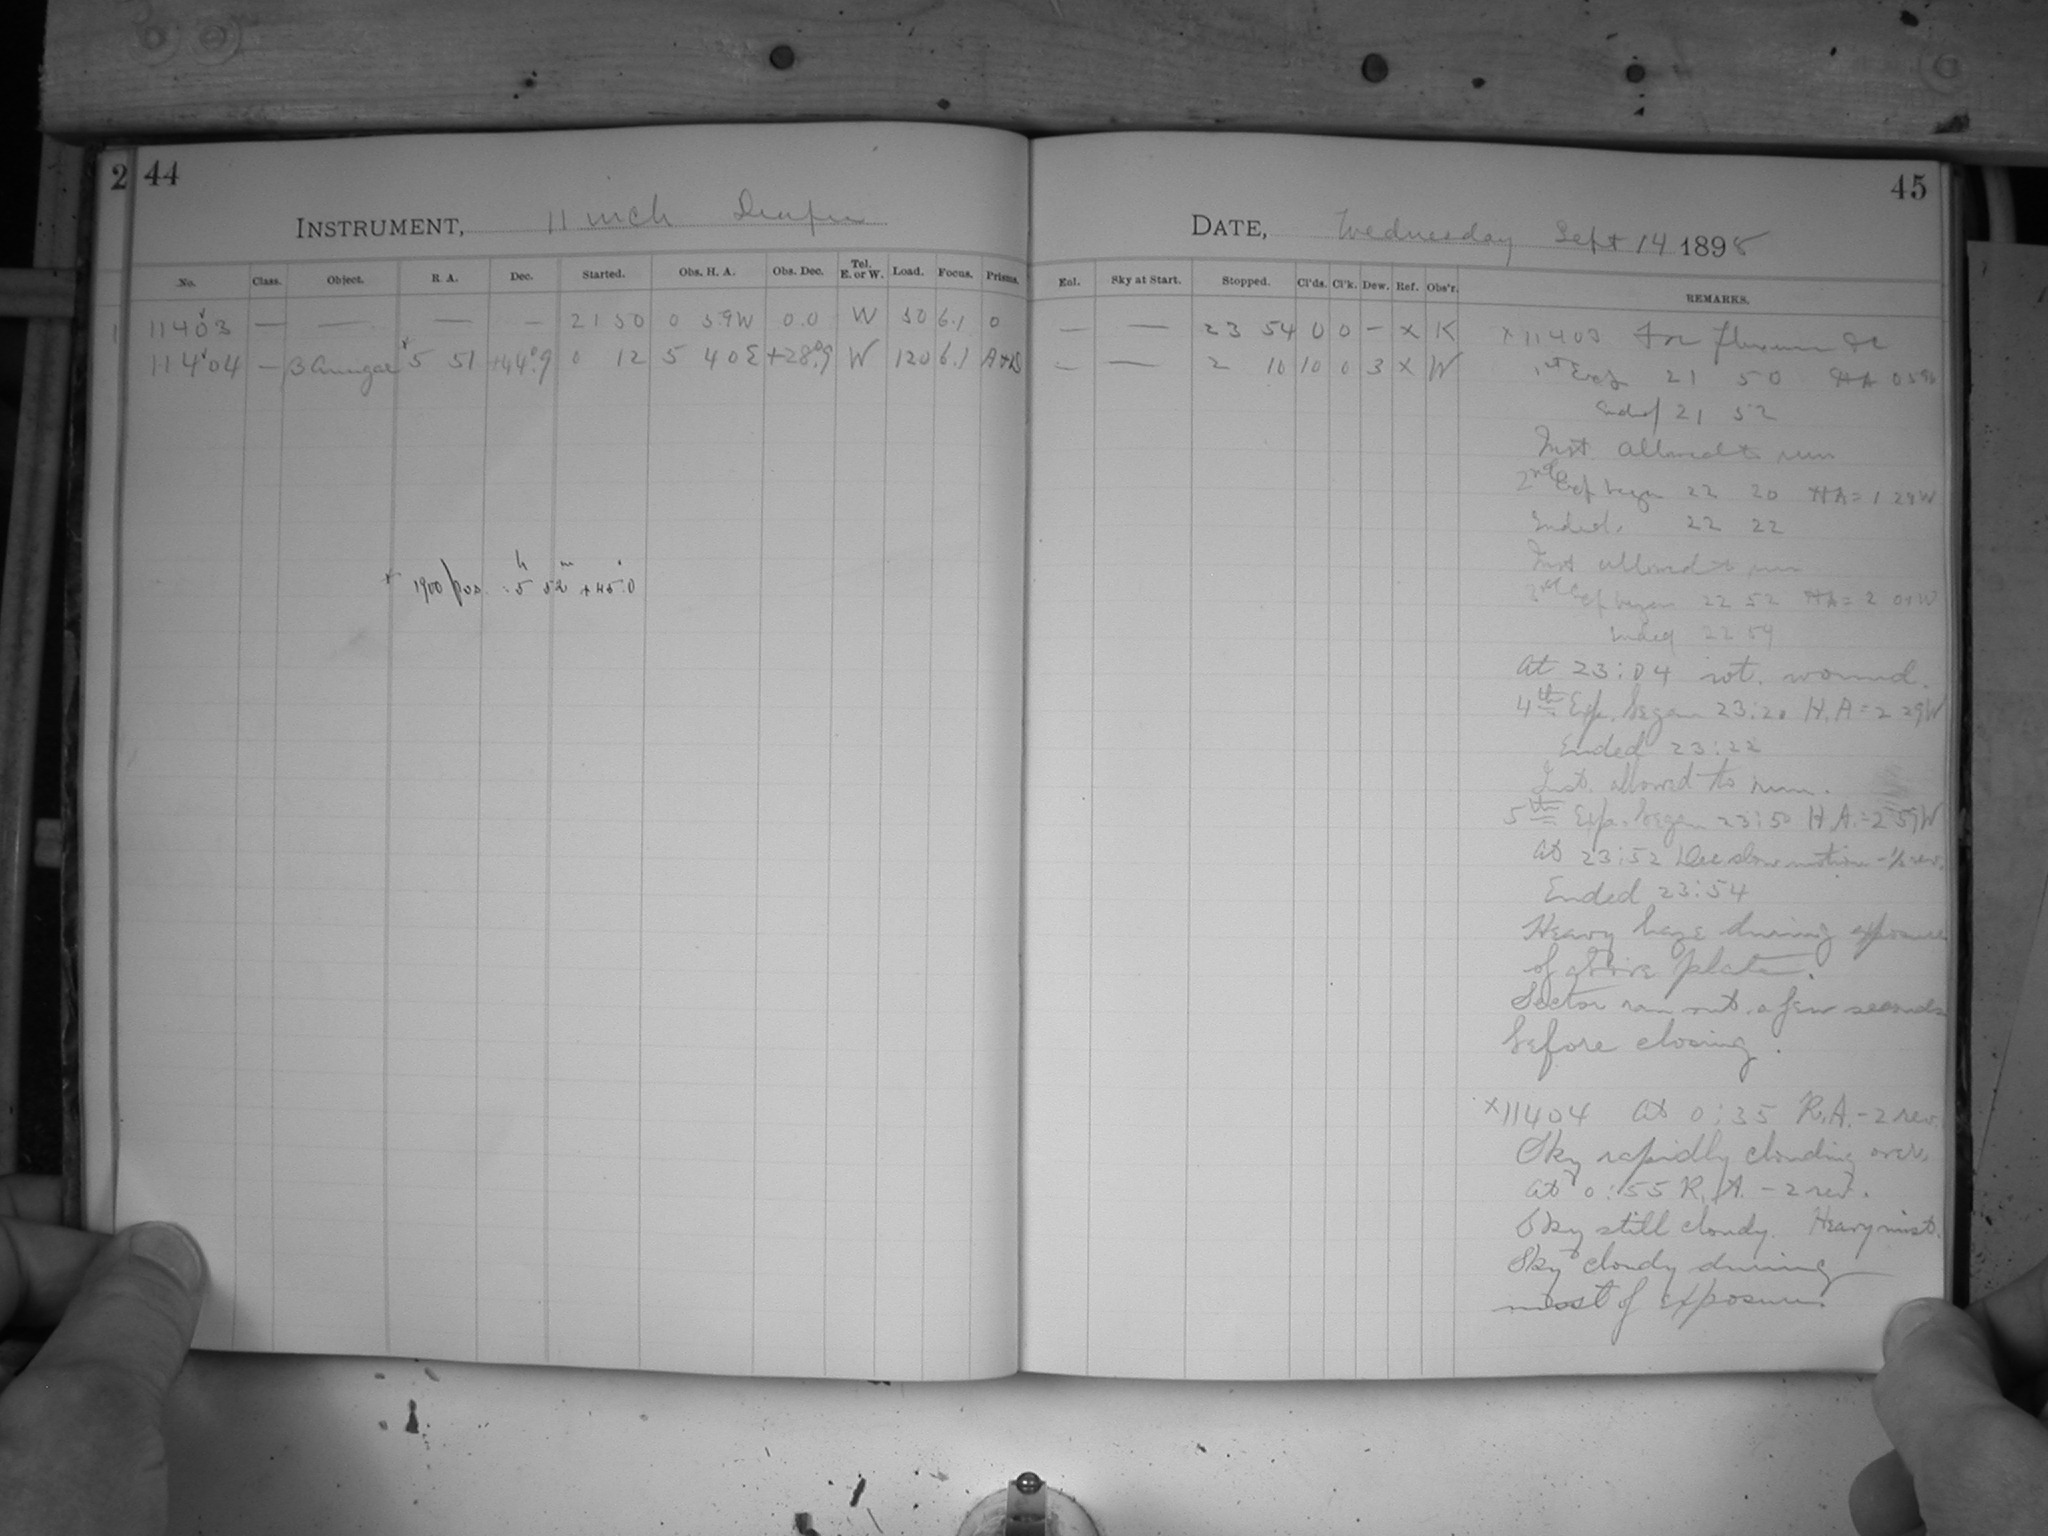 2 44
INSTRUMENT, 11 inch Draper
No. Class. Object. R. A. Dec. Started. Obs. H. A. Obs. Dec. Tel. E. or W. Load. Focus. Prisms.
1 11403 — — — — 21 50 0 59W 0.0 W 50 6.1 0
11404 — β Aurigae 5 51 +44°.9 0 12 5 40E +28°.9 W 120 6.1
x 1900 pos. = 5h 52m +45°.0
45
DATE, Wednesday Sept 14 1898
Enl. Sky at Start. Stopped. Cl'ds. Cl'k. Dew. Ref. Obs'r. REMARKS.
— — 23 54 0 0 — x K
— — 2 10 10 0 3 x W
x 11403 For flexure &c
1st Exp 21 50 HA 0 59W
End of 21 52
Inst. allowed to run
2nd Exp began 22 20 HA = 1 29W
Ended. 22 22
Inst allowed to run
3rd Exp began 22 52 HA = 2 01W
Ended 22 54
At 23:04 wt. wound.
4th Exp. began 23:20 H.A = 2 29W
Ended 23:22
Inst. allowed to run.
5th Exp. began 23:50 H.A. = 2 59W
At 23:52 Dec. slow motion - ½ rev.
Ended 23:54
Heavy haze during exposure
of above plate.
Sector ran out a few seconds
before closing.
x 11404 At 0:35 R.A. - 2 rev.
Sky rapidly clouding over.
At 0:55 R.A. - 2 rev.
Sky still cloudy. Heavy mist.
Sky cloudy during
most of exposure.